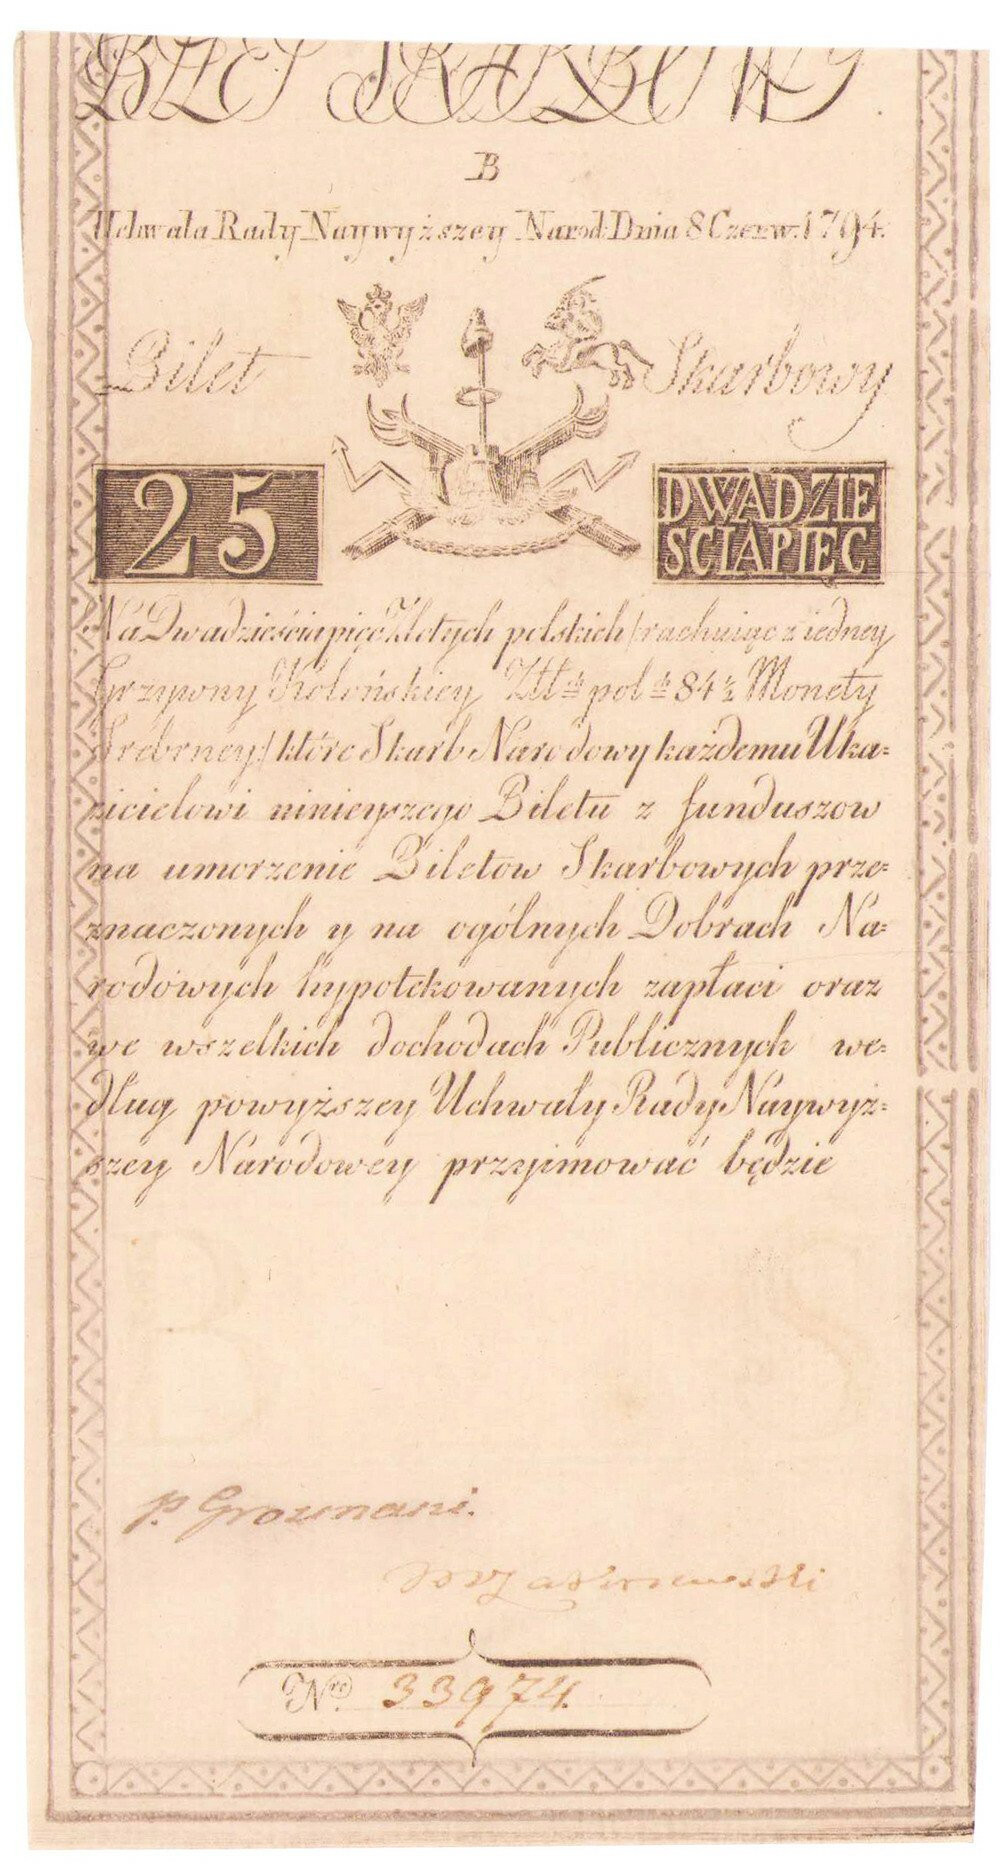 BILET SKARBOWY.
B
Uchwała Rady Naywyższey Narod: Dnia 8 Czerw: 1794.
Bilet Skarbowy
25
DWADZIE
SCIAPIĘC
Na Dwadzieściapięć Złotych polskich /rachuiąc z iedney
Grzywny Kolońskiey Złł: pol: 84½ Monety
Srebrney/ które Skarb Narodowy każdemu Uka=
zicielowi ninieyszego Biletu z funduszow
na umorzenie Biletow Skarbowych prze=
znaczonych y na ogólnych Dobrach Na=
rodowych hypotekowanych zapłaci oraz
we wszelkich dochodach Publicznych we=
dług powyższey Uchwały Rady Naywyż=
szey Narodowey przyimować będzie
P. Grozmani.
Nro. 33974.